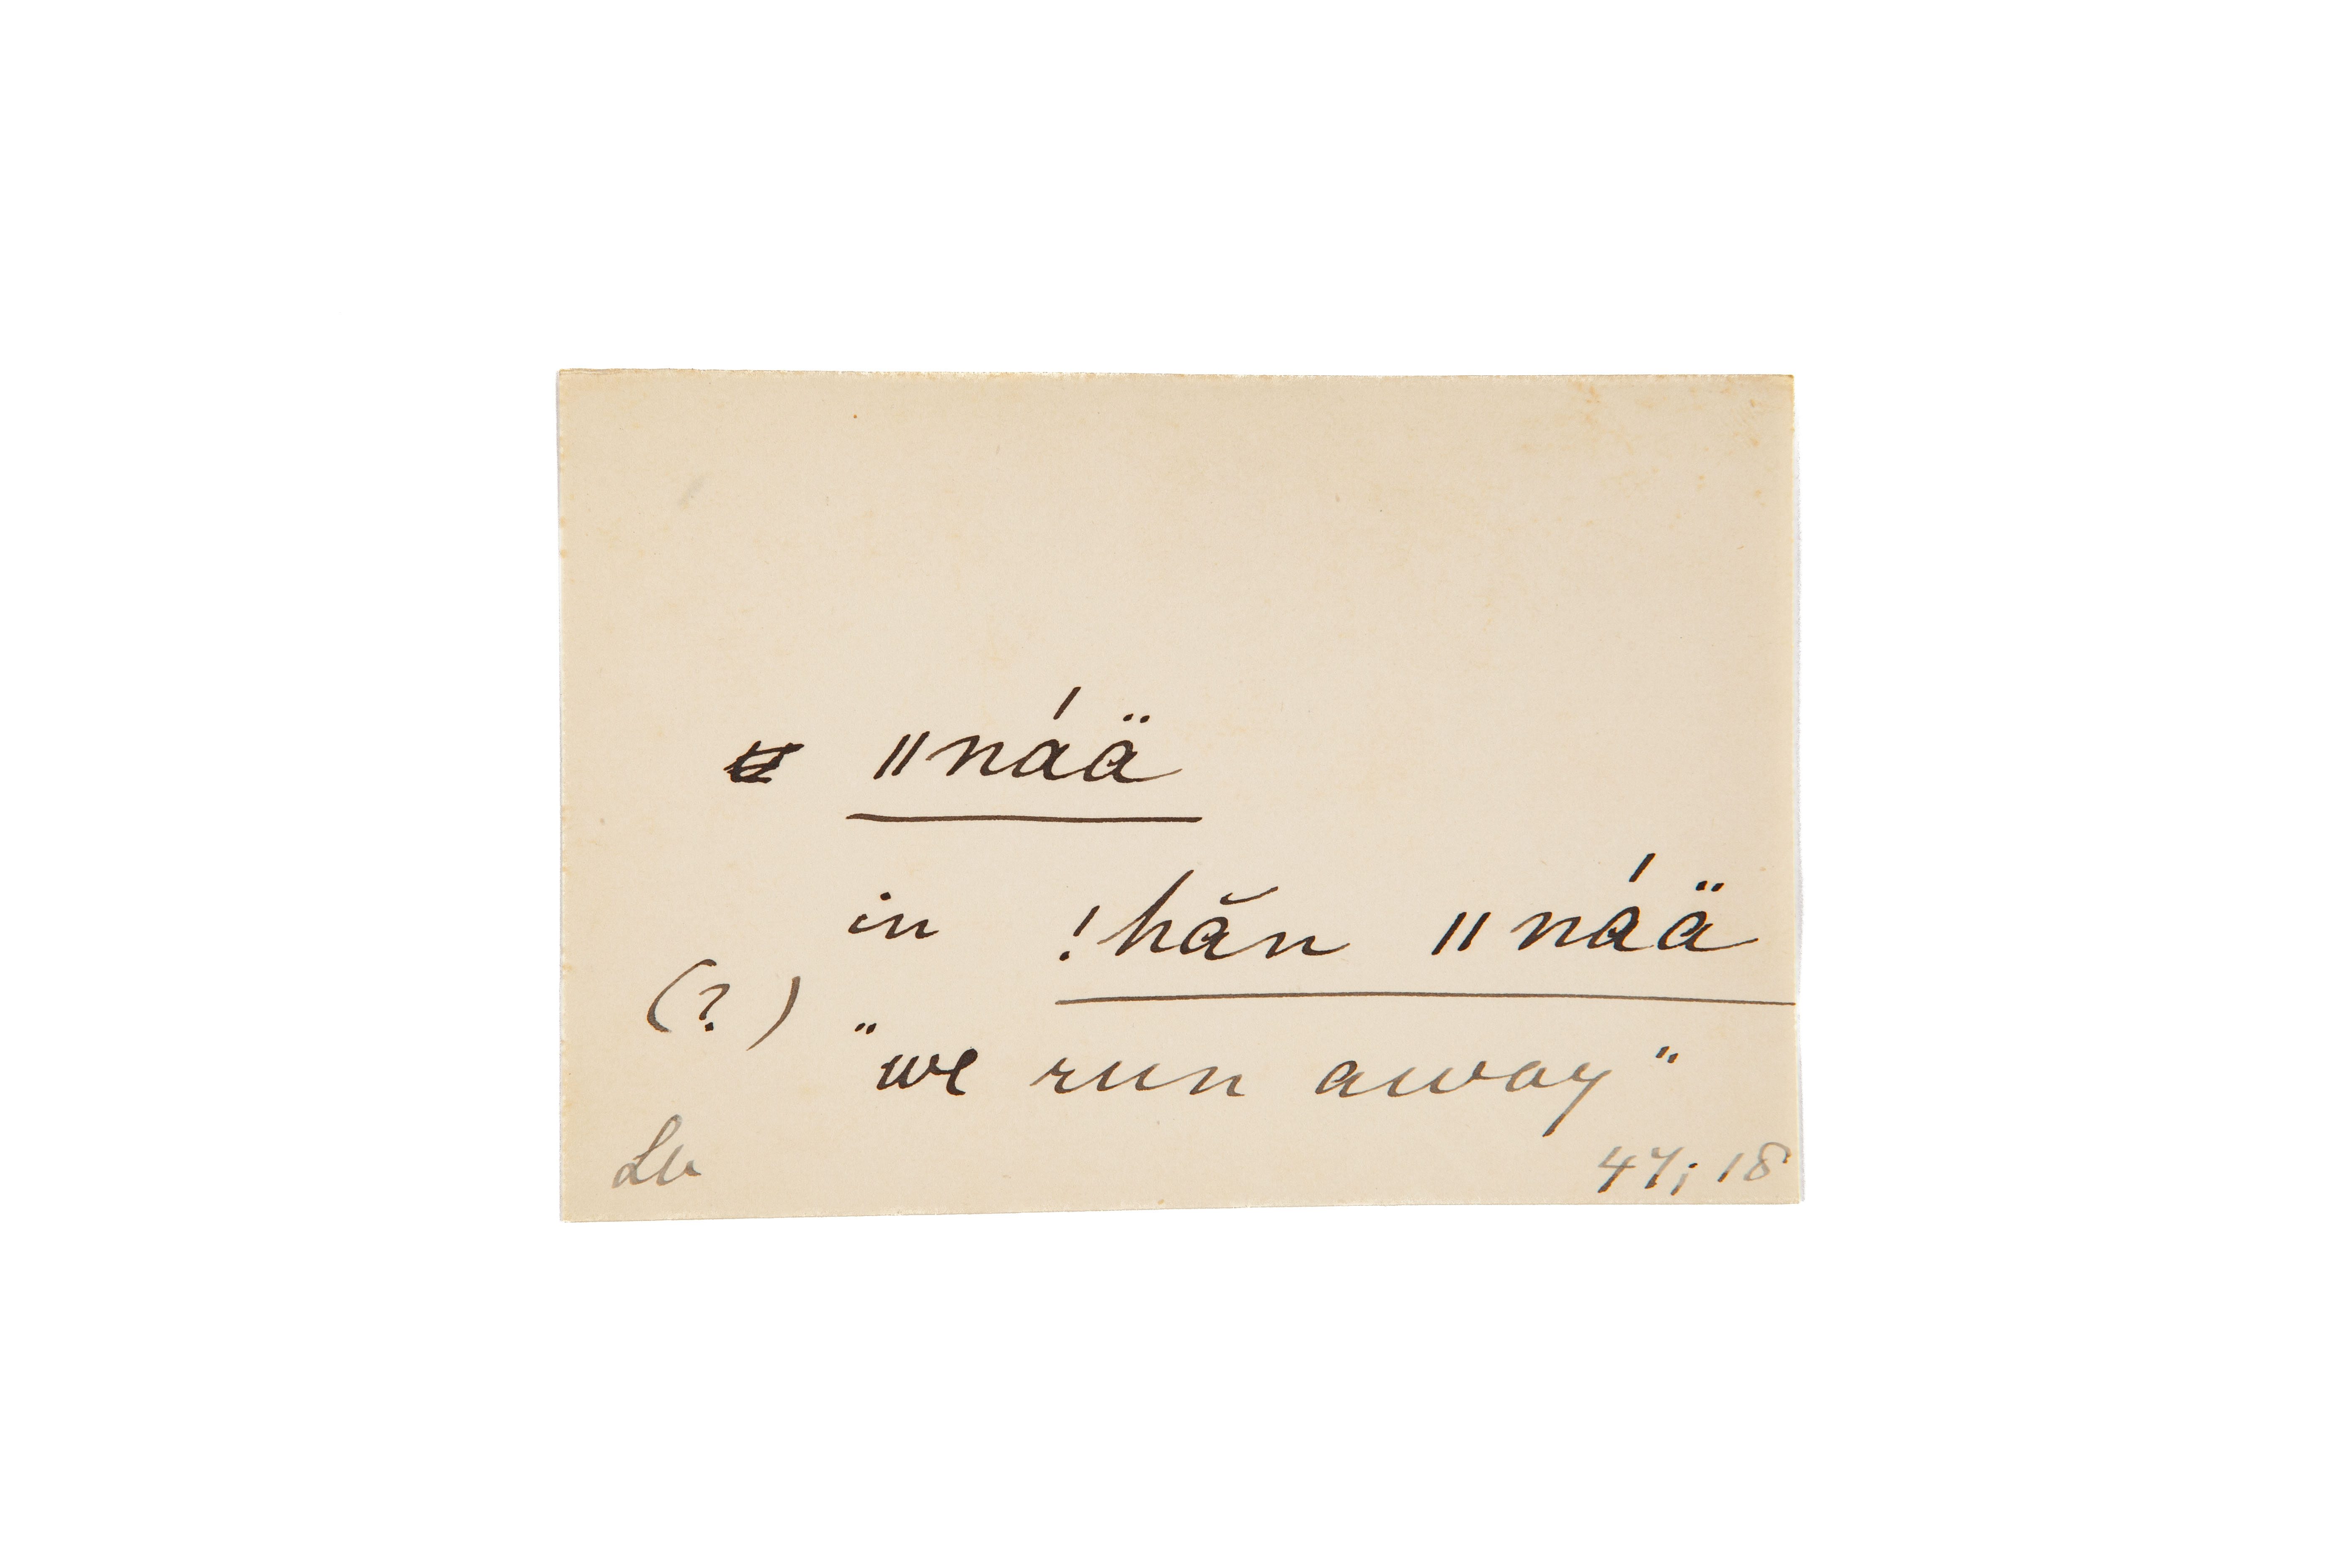 ǁnáä
in !hăn ǁnáä
(?) "we run away"
Lb 47; 18